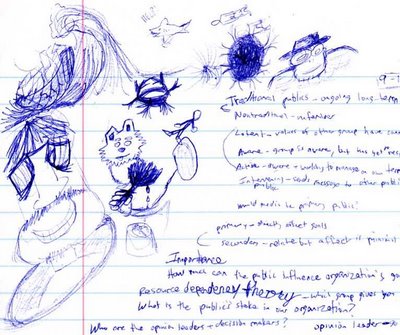 9-
Traditional publics - ongoing long-term
Nontraditional -
Latent - values of other group have
Aware - group is aware, but has yet
Active - aware - working to
Intervening - sends message to other
public
Would media be primary public?
primary - directly affect goals
secondary - relate but affect is minimal
Importance
How much can the public influence organization's
Resource dependency theory - which group gives you
What is the public's stake in our organization?
Who are the opinion leaders + decision makers?
opinion leader